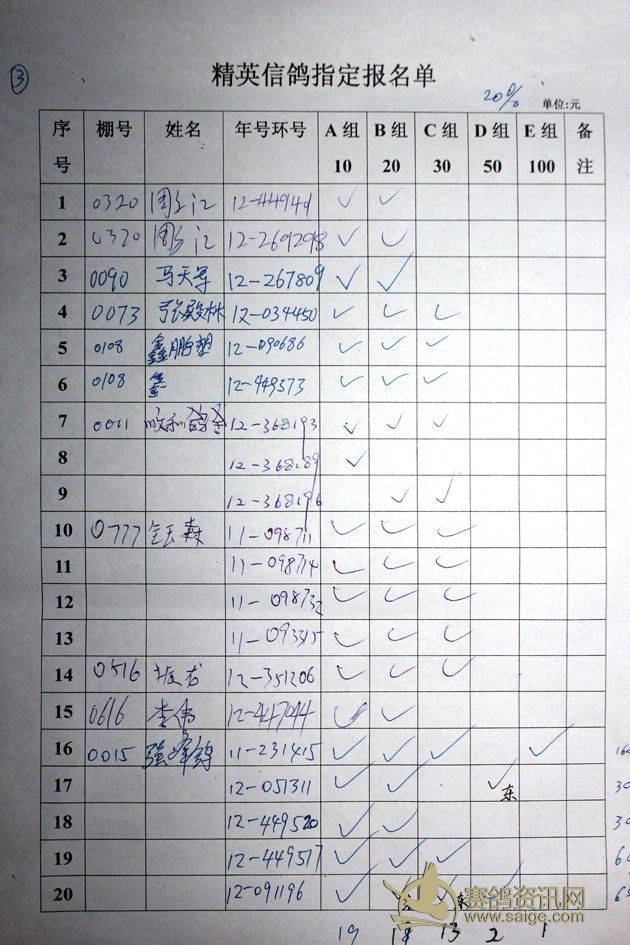 ③
精英信鸽指定报名单
20% 单位:元
序号 棚号 姓名 年号环号 A组 10 B组 20 C组 30 D组 50 E组 100 备注
1 0320 12-44949 ✓ ✓
2 0320 12-2692948 ✓ ✓
3 0090 马天军 12-267809 ✓ ✓
4 0073 张殿林 12-034450 ✓ ✓ ✓
5 0108 鑫鹏翅 12-090686 ✓ ✓ ✓
6 0108 鑫 12-449373 ✓ ✓ ✓
7 0011 顺利鸽舍 12-368193 ✓ ✓ ✓
8 12-368189 ✓
9 12-368196 ✓ ✓
10 0777 11-098711 ✓ ✓ ✓
11 11-098714 ✓ ✓ ✓
12 11-098732 ✓ ✓ ✓
13 11-093415 ✓ ✓ ✓
14 0516 12-351206 ✓ ✓ ✓
15 0616 李伟 12-447944 ✓ ✓
16 0015 11-231415 ✓ ✓ ✓ ✓
17 12-051311 ✓ ✓ ✓ 东
18 12-449520 ✓ ✓
19 12-449517 ✓ ✓ ✓
20 12-091196 ✓ ✓ ✓
赛鸽资讯网
www.saige.com
19 18 13 2 1